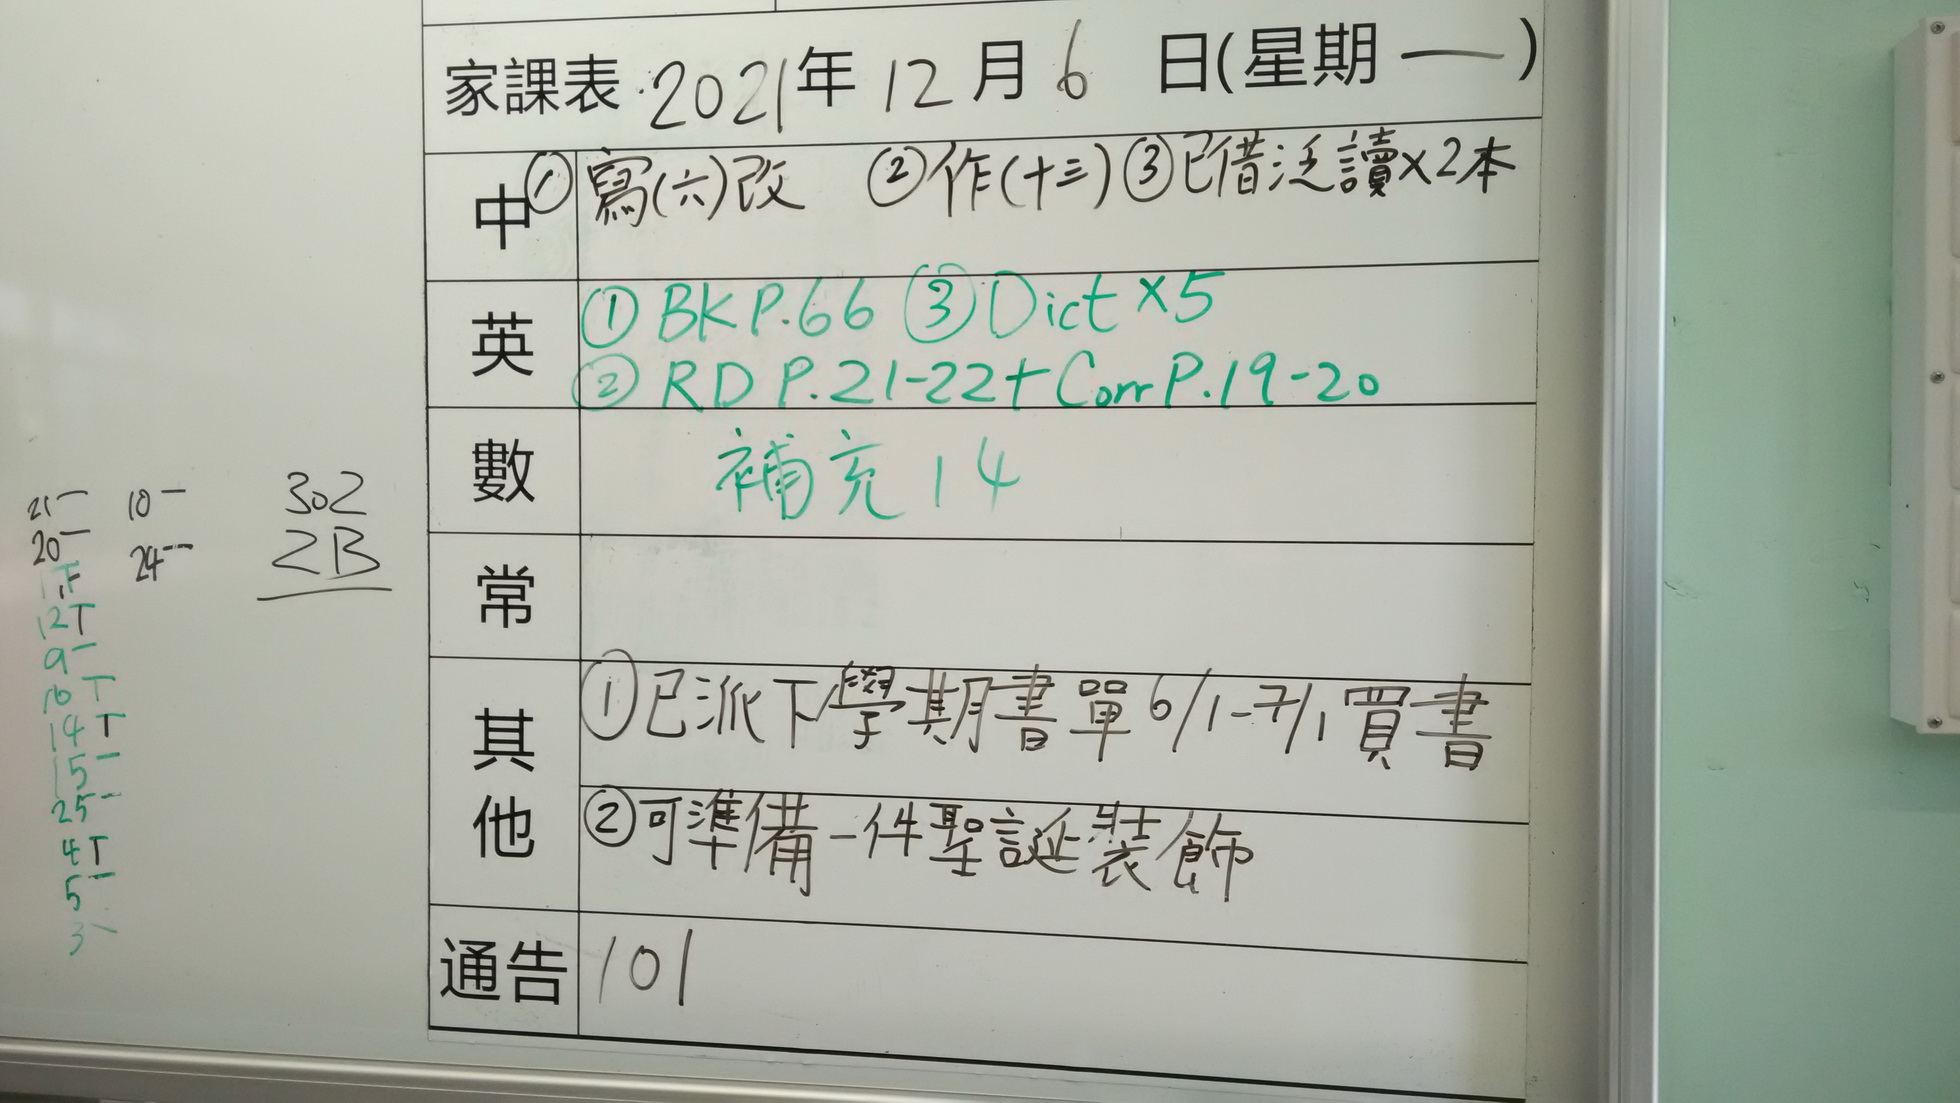 家課表 2021年 12月 6日(星期一)
中 ①寫(六)改 ②作(十三) ③已借泛讀×2本
英 ①BK P.66 ③Dict ×5
②RD P.21-22+Corr P.19-20
數 補充14
常
其他 ①已派下學期書單6/1-7/1買書
②可準備一件聖誕裝飾
通告 101
302
2B
21一 10一
20一 24一
12T
9一
10T
14T
15一
25一
4T
5一
3一